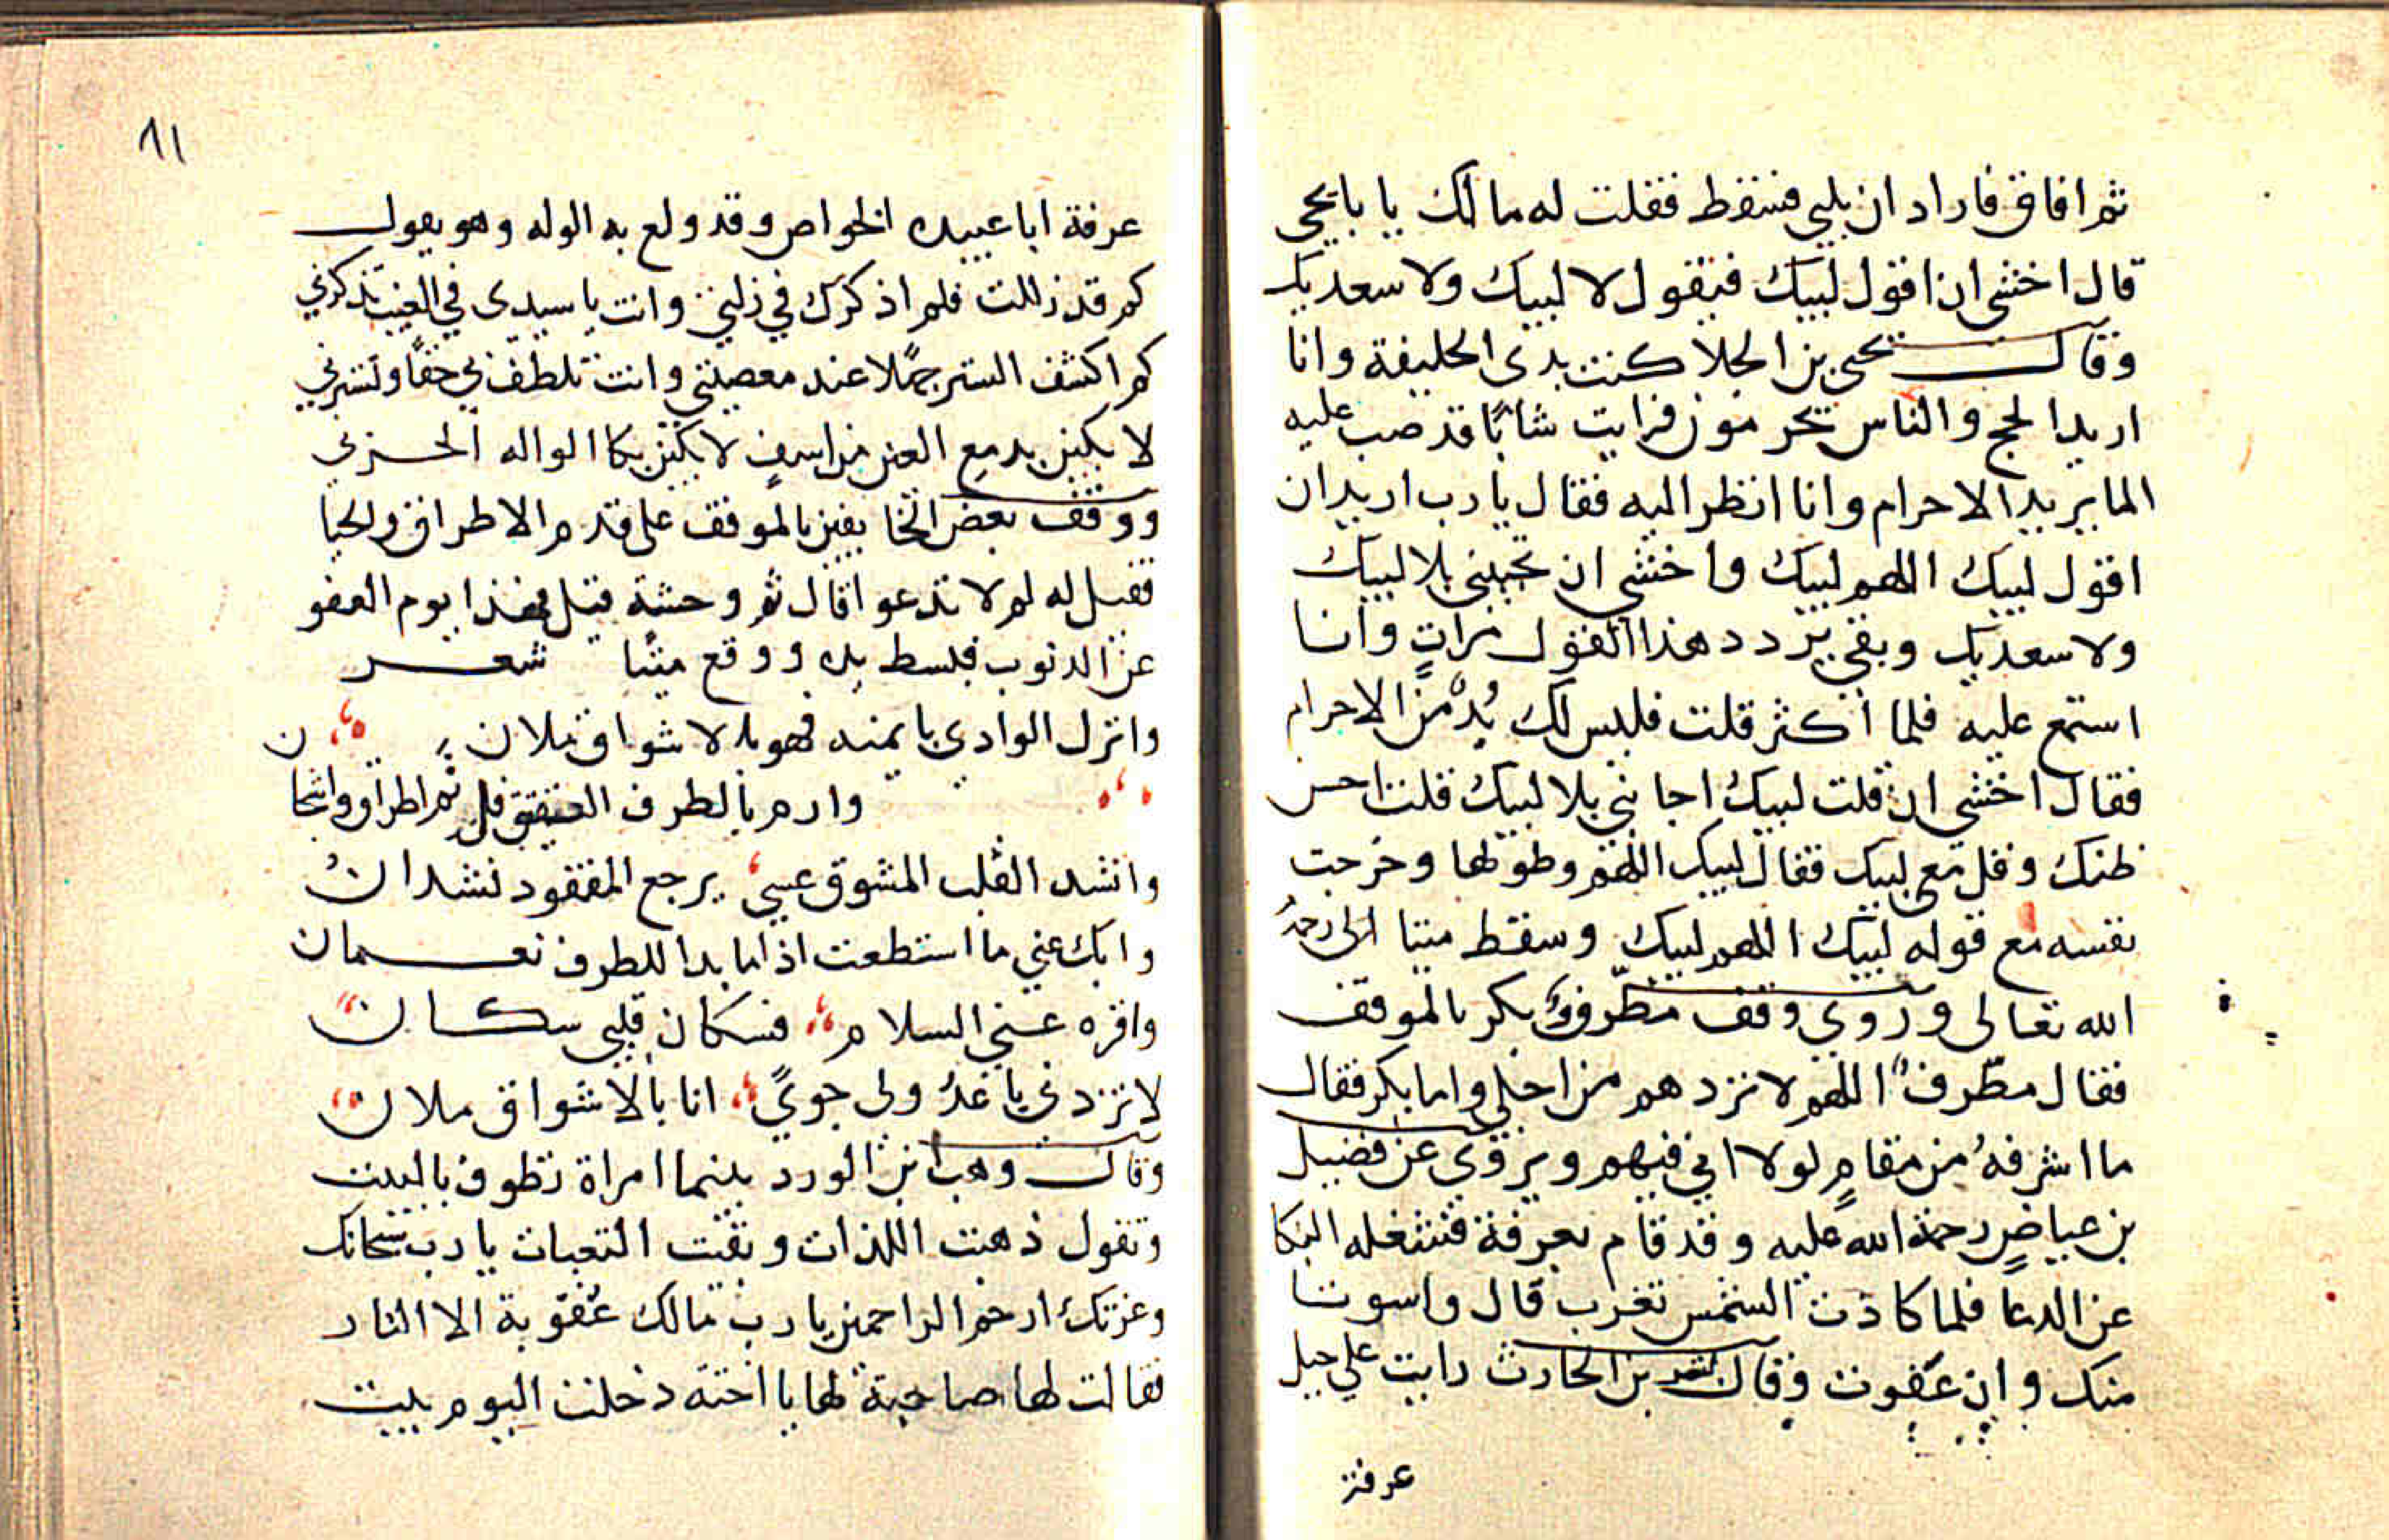 ثم افاق فاراد ان يلبي فسقط فقلت له مالك يا بايحيي
قال اخشي ان اقول لبيك فيقول لا لبيك ولا سعديك
وقال يحيي بن الجلا كنت بذي الحليفة وانا
اريد الحج والناس يحرمون فرايت شابًا قد صب عليه
الما يريد الاحرام وانا انظر اليه فقال يا رب اريد ان
اقول لبيك اللهم لبيك واخشي ان تجيبني بلا لبيك
ولا سعديك وبقي يردد هذا القول مراتٍ وانا
استمع عليه فلما اكثر قلت فليس لك بُدٌّ من الاحرام
فقال اخشي ان قلت لبيك اجابني بلا لبيك قلت احسن
ظنك وقل معي لبيك فقال لبيك اللهم وطولها وخرجت
نفسه مع قوله لبيك اللهم لبيك وسقط ميتا الى رحمة
الله تعالى وروي وقف مطّرف وبكر بالموقف
فقال مطّرف اللهم لا تردهم من اجلي واما بكر فقال
ما اشرفهُ من مقامٍ لولا اني فيهم ويروي عن فضيل
بن عياضٍ رحمة الله عليه وقد قام بعرفة فشغله البكا
عن الدعا فلما كادت الشمس تغرب قال واسوتا
منك وان عفوت وقال بن الحارث رايت علي جبل
عرفة
٨١
عرفة ابا عبيده الخواص وقد ولع به الوله وهو يقول
كم قد زللت فلم اذكرك في زللي وانت يا سيدي في الغيب تذكرني
كم اكشف الستر جهلا عند معصيتي وانت تلطف بي حقًا وتسترني
لا بكين بدمع العين من اسفٍ لا بكين بكا الواله الحزين
ووقف بعض الخايفين بالموقف على قدم الاطراق والحيا
فقيل له لم لا تدعوا قال ثم وحشة قيل فهذا يوم العفو
عن الذنوب فبسط يده ووقع ميتًا شعر
وانزل الوادي بايمنه فهو بالاشواق ملان
وارم بالطرف العقيق فلي ثم اطراق واشجان
وانشد القلب المشوق عسي يرجع المفقود نشدانُ
وابك عني ما استطعت اذا ما بدا للطرف نعمان
واقره عني السلام فسكان قلبي سكان
لا تزدني يا عذولى جويً انا بالاشواق ملان
وقال وهب بن الورد بينما امراة تطوف بالبيت
وتقول ذهبت اللذات وبقيت التبعات يا رب سبحانك
وعزتك ارحم الراحمين يا رب مالك عقوبة الا النار
فقالت لها صاحبة لها يا اخته دخلت اليوم بيت